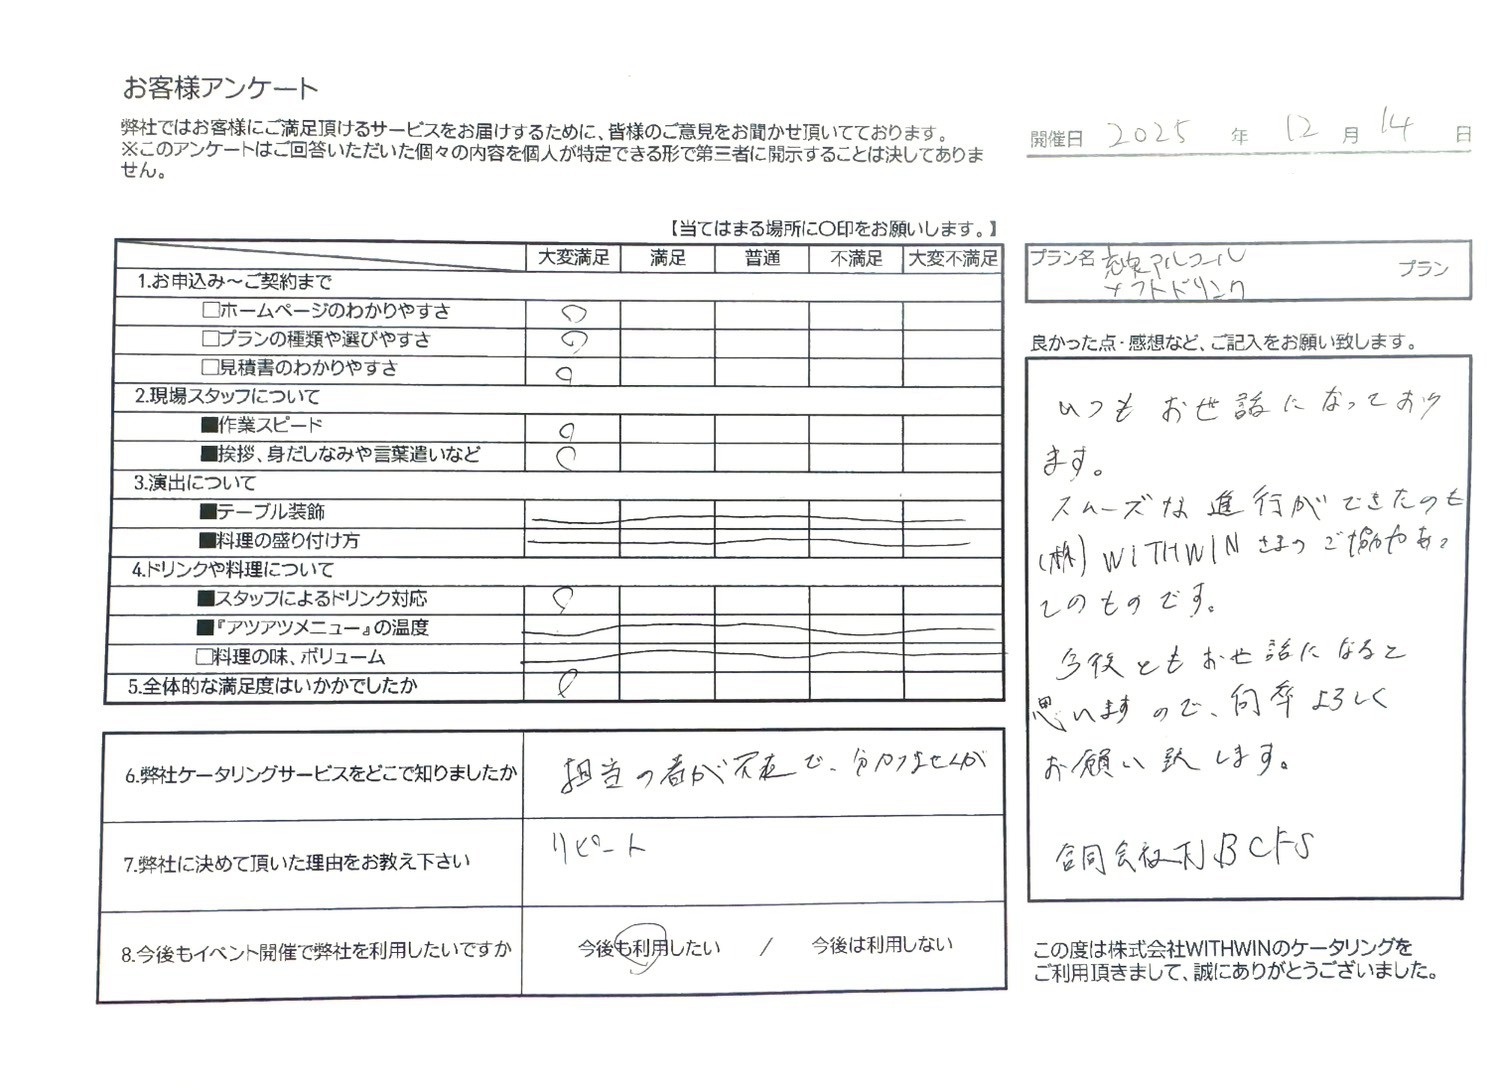 お客様アンケート
弊社ではお客様にご満足頂けるサービスをお届けするために、皆様のご意見をお聞かせ頂いてております。
※このアンケートはご回答いただいた個々の内容を個人が特定できる形で第三者に開示することは決してありま
せん。
開催日 2025 年 12 月 14 日
【当てはまる場所に〇印をお願いします。】
大変満足 満足 普通 不満足 大変不満足
1.お申込み～ご契約まで
□ホームページのわかりやすさ
□プランの種類や選びやすさ
□見積書のわかりやすさ
2.現場スタッフについて
■作業スピード
■挨拶、身だしなみや言葉遣いなど
3.演出について
■テーブル装飾
■料理の盛り付け方
4.ドリンクや料理について
■スタッフによるドリンク対応
■『アツアツメニュー』の温度
□料理の味、ボリューム
5.全体的な満足度はいかかでしたか
6.弊社ケータリングサービスをどこで知りましたか
担当の者が不在で、分かりませんが
7.弊社に決めて頂いた理由をお教え下さい
リピート
8.今後もイベント開催で弊社を利用したいですか
今後も利用したい / 今後は利用しない
プラン名 アルコール プラン
ソフトドリンク
良かった点・感想など、ご記入をお願い致します。
いつもお世話になっており
ます。
スムーズな進行ができたのも
(株)WITHWINさまのご協力あっ
てのものです。
今後ともお世話になると
思いますので、何卒よろしく
お願い致します。
合同会社 BCFS
この度は株式会社WITHWINのケータリングを
ご利用頂きまして、誠にありがとうございました。